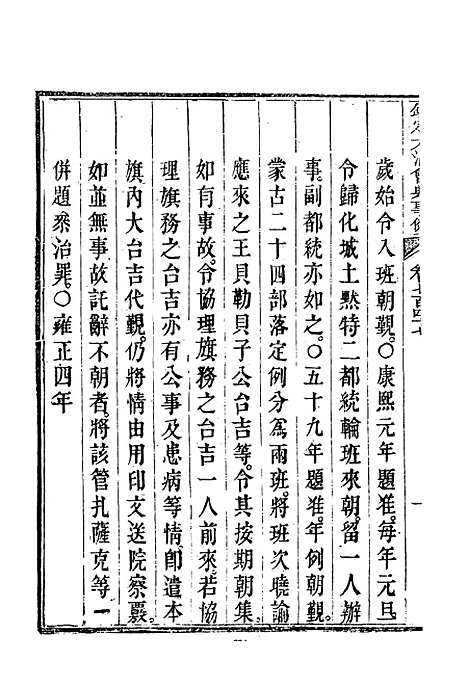 歲始令入班朝覲。〇康熙元年題准。每年元旦
令歸化城土默特二都統輪班來朝。留一人辦
事。副都統亦如之。〇五十九年題准。年例朝覲。
蒙古二十四部落定例分爲兩班。將班次曉諭
應來之王貝勒貝子公台吉等。令其按期朝集。
如有事故。令協理旗務之台吉一人前來。若協
理旗務之台吉亦有公事及患病等情。卽遣本
旗內大台吉代覲。仍將情由用印文送院察覈。
如並無事故託辭不朝者。將該管扎薩克等一
併題叅治罪。〇雍正四年